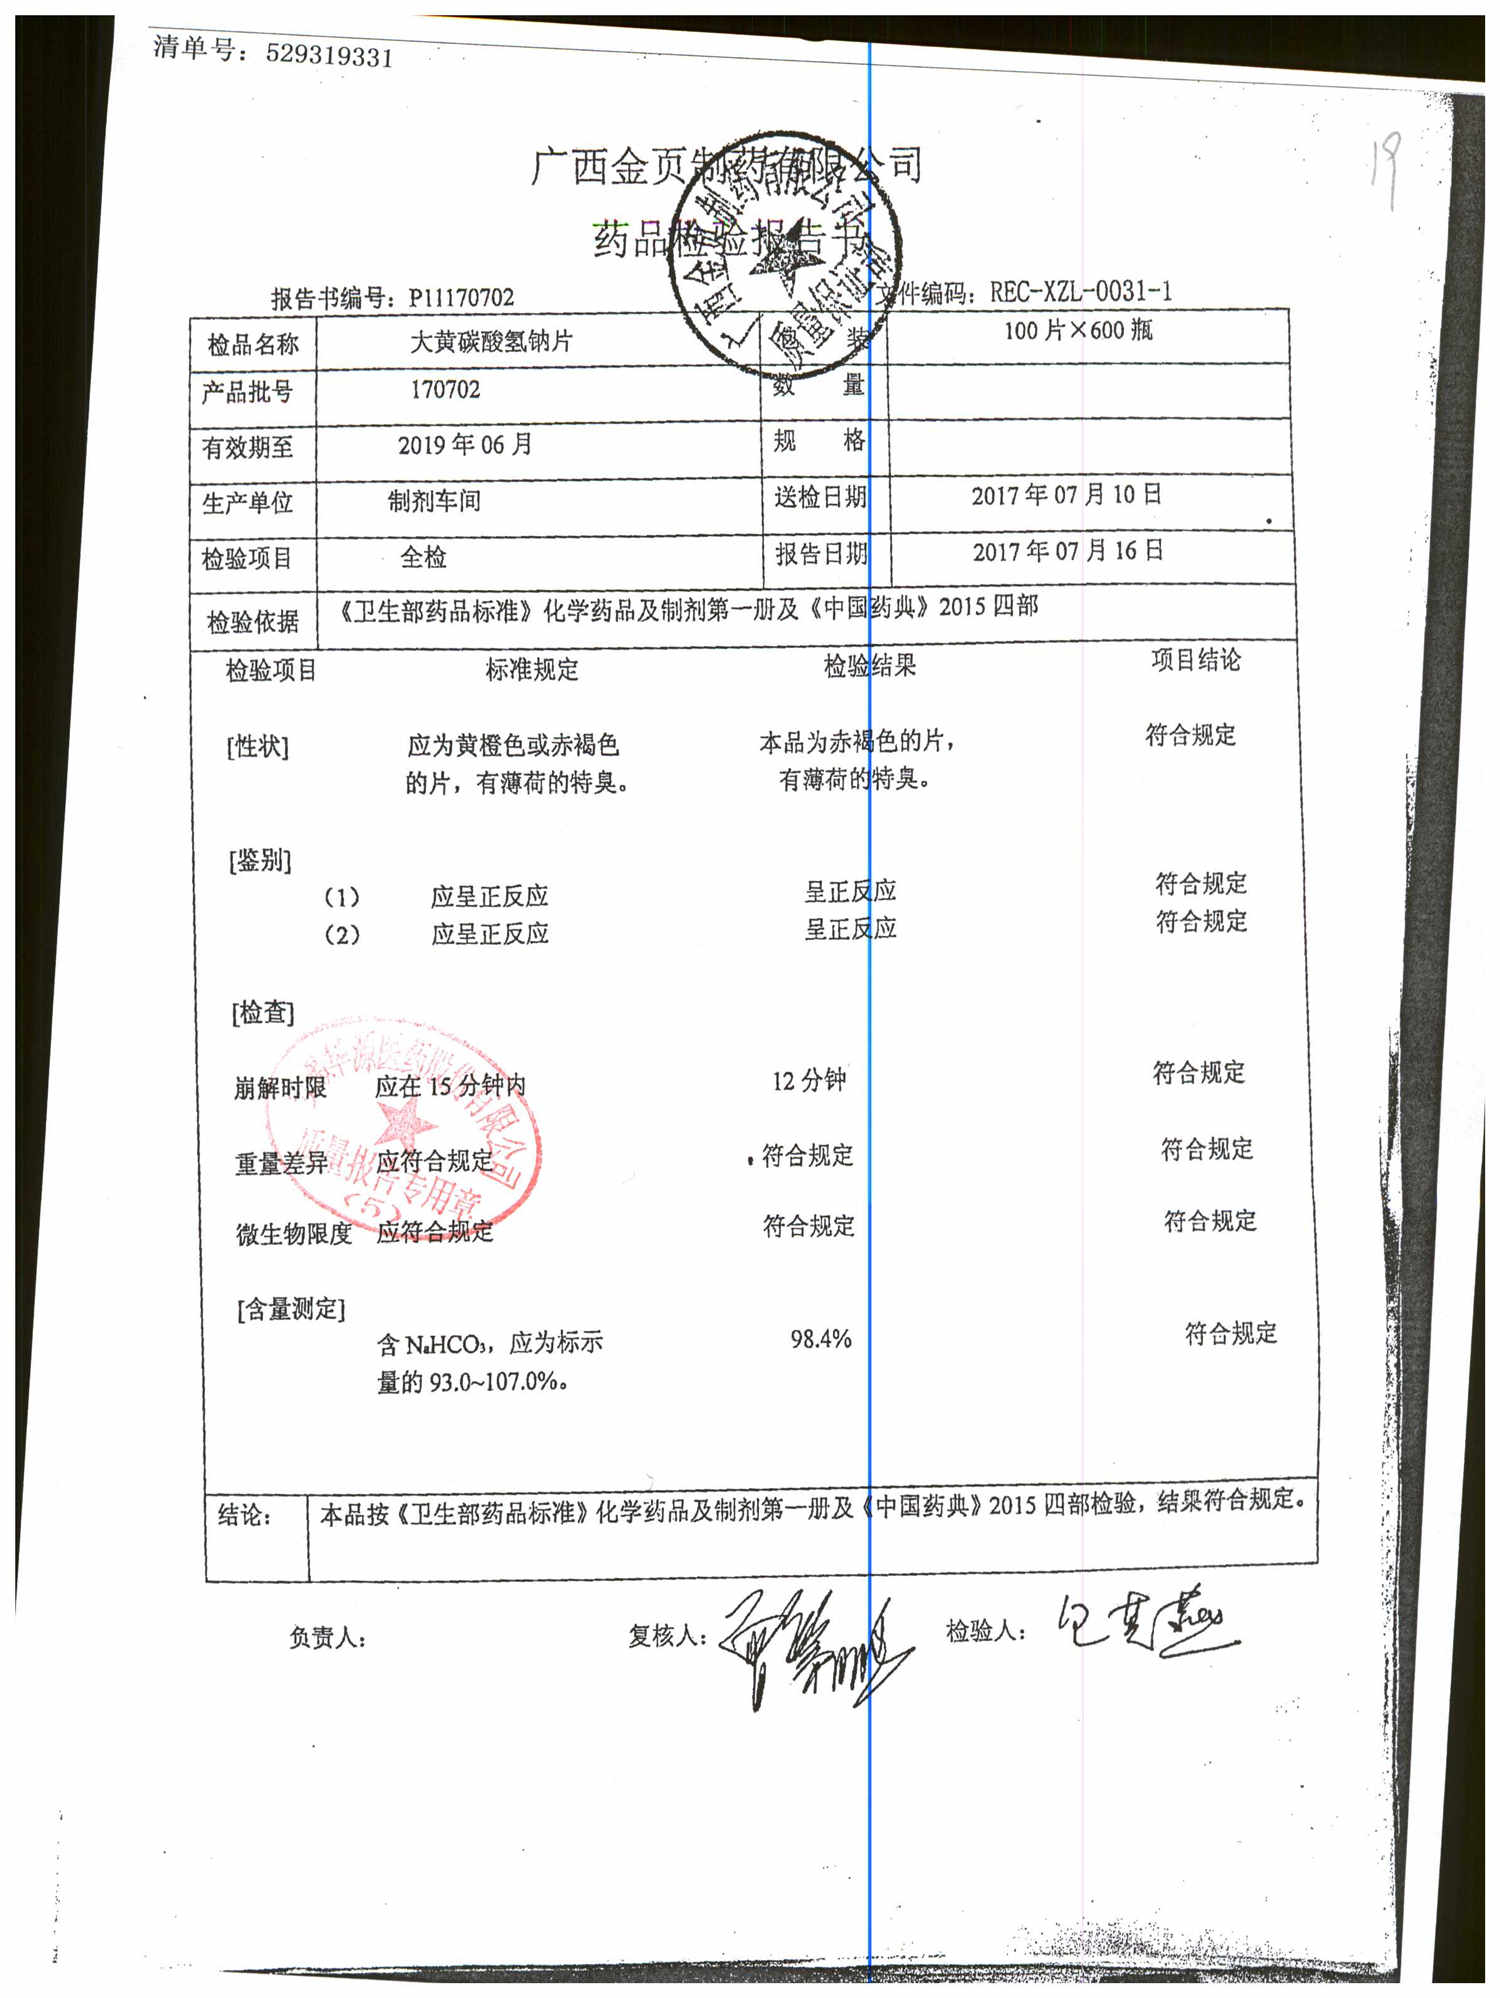 清单号：529319331
19
广西金页制药有限公司
药品检验报告书
报告书编号：P11170702 文件编码：REC-XZL-0031-1
检品名称 大黄碳酸氢钠片 包 装 100片×600瓶
产品批号 170702 数 量
有效期至 2019年06月 规 格
生产单位 制剂车间 送检日期 2017年07月10日
检验项目 全检 报告日期 2017年07月16日
检验依据 《卫生部药品标准》化学药品及制剂第一册及《中国药典》2015四部
检验项目 标准规定 检验结果 项目结论
[性状] 应为黄橙色或赤褐色 本品为赤褐色的片， 符合规定
的片，有薄荷的特臭。 有薄荷的特臭。
[鉴别]
（1） 应呈正反应 呈正反应 符合规定
（2） 应呈正反应 呈正反应 符合规定
[检查]
崩解时限 应在15分钟内 12分钟 符合规定
重量差异 应符合规定 符合规定 符合规定
微生物限度 应符合规定 符合规定 符合规定
[含量测定]
含NaHCO₃，应为标示 98.4% 符合规定
量的93.0~107.0%。
结论： 本品按《卫生部药品标准》化学药品及制剂第一册及《中国药典》2015四部检验，结果符合规定。
负责人： 复核人： 检验人：
广西金页制药有限公司
质量保证部
华源医药股份有限公司
质量报告专用章
（5）